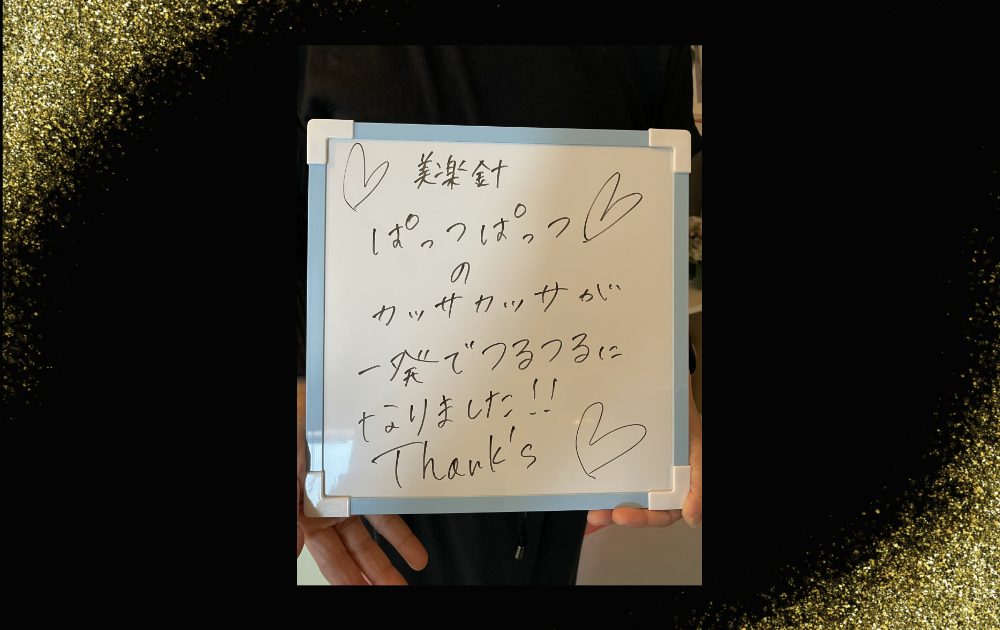 美楽針
ぱっつぱっつ
の
カッサカッサが
一発でつるつるに
なりました!!
Thank's